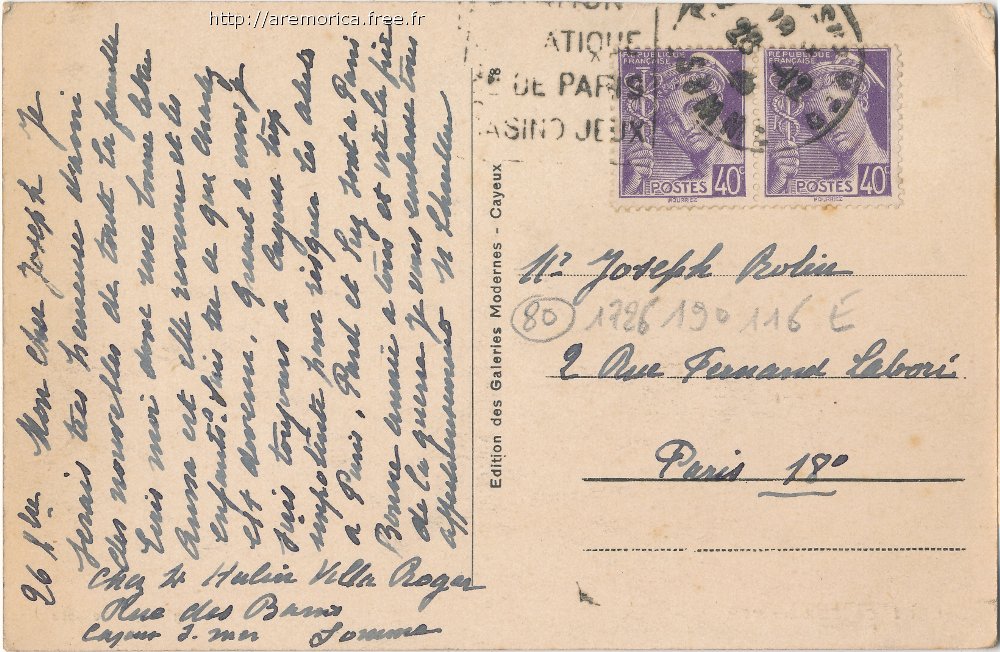 http://aremorica.free.fr
26 Xbre Mon cher Joseph Je
serais très heureuse d'avoir
des nouvelles de toute la famille
Suis moi dans une bonne
Anna est elle revenue et les
enfants. Suis de que Charles
est devenu, quant a moi je
suis toujours a Cayeux trop
impotente pour risquer les abus
a Paris, Paul et Suz sont a Paris
Bonne année a tous et vite la fin
de la guerre Je vous embrasse tous
affectueusement
Chez Mr Hulin Villa Roger
Rue des Bains
Cayeux s. mer Somme
78
Edition des Galeries Modernes - Cayeux
ATIQUE
DE PARIS
ASINO JEUX
SOMME
REPUBLIQUE FRANÇAISE
POSTES 40c
REPUBLIQUE FRANÇAISE
POSTES 40c
Mr Joseph Rolin
80 1726 190 116 E
2 Rue Fernand Labori
Paris 18º